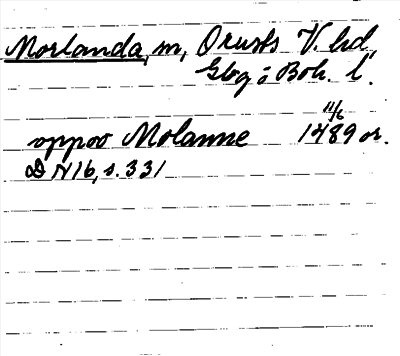 Morlanda, sn, Orusts V. hd,
Gbg o Boh. l.
11/6
oppoo Molanne 1489 or.
DN 16, s. 331